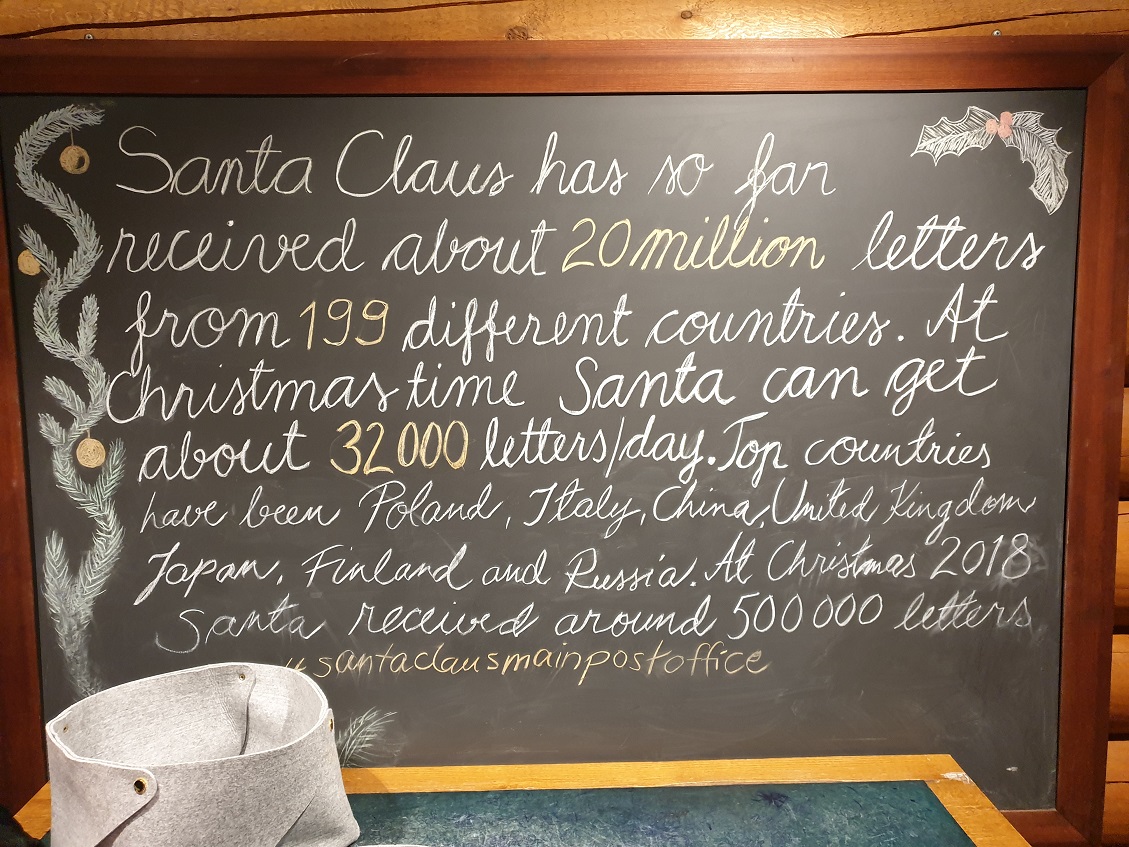 Santa Claus has so far
received about 20 million letters
from 199 different countries. At
Christmas time Santa can get
about 32 000 letters/day. Top countries
have been Poland, Italy, China, United Kingdom
Japan, Finland and Russia. At Christmas 2018
Santa received around 500 000 letters
#santaclausmainpostoffice